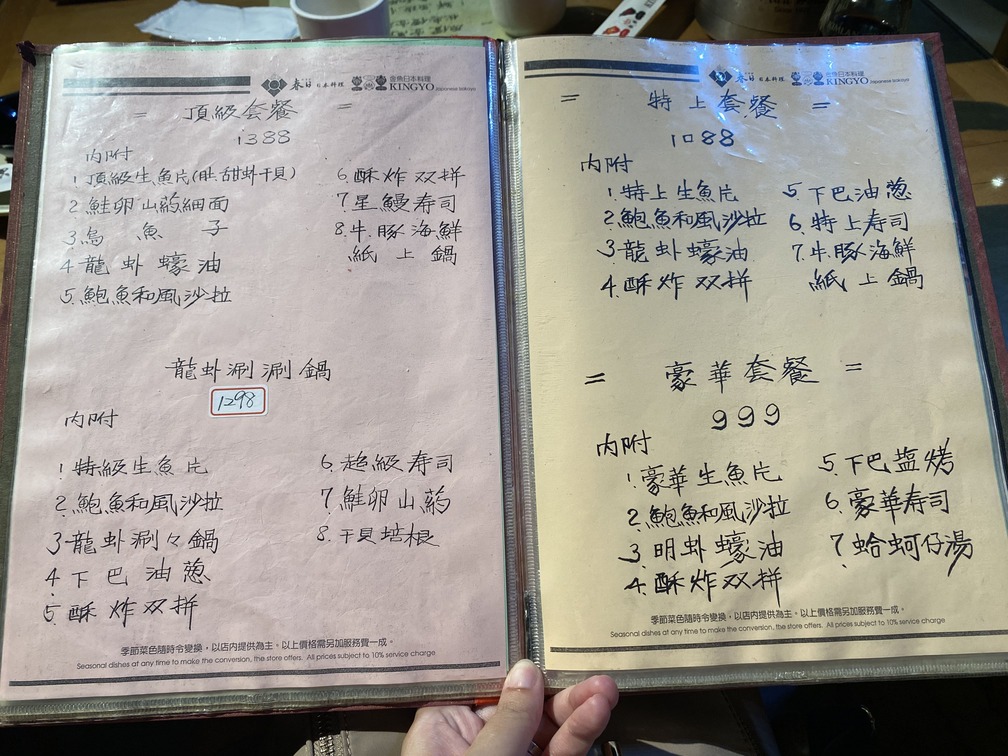 春日 日本料理 金魚日本料理 KINGYO Japanese kakoya
= 頂級套餐 =
1388
內附
1. 頂級生魚片(肚.甜虾干貝)
2. 鮭卵山葯細面
3. 烏魚子
4. 龍虾蠔油
5. 鮑魚和風沙拉
6. 酥炸双拼
7. 星鰻寿司
8. 牛.豚海鮮
紙上鍋
龍虾涮涮鍋
1298
內附
1. 特級生魚片
2. 鮑魚和風沙拉
3. 龍虾涮々鍋
4. 下巴油葱
5. 酥炸双拼
6. 超級寿司
7. 鮭卵山葯
8. 干貝培根
季節菜色隨時令變換,以店內提供為主。以上價格需另加服務費一成。
Seasonal dishes at any time to make the conversion, the store offers. All prices subject to 10% service charge
春日 日本料理 金魚日本料理 KINGYO
= 特上套餐 =
1088
內附
1. 特上生魚片
2. 鮑魚和風沙拉
3. 龍虾蠔油
4. 酥炸双拼
5. 下巴油葱
6. 特上寿司
7. 牛.豚海鮮
紙上鍋
= 豪華套餐 =
999
內附
1. 豪華生魚片
2. 鮑魚和風沙拉
3. 明虾蠔油
4. 酥炸双拼
5. 下巴塩烤
6. 豪華寿司
7. 蛤蚵仔湯
季節菜色隨時令變換,以店內提供為主。以上價格需另加服務費一成。
Seasonal dishes at any time to make the conversion, the store offers. All prices subject to 10% service charge